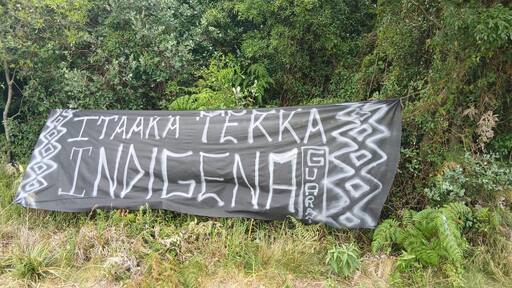 ITAARA TERRA
INDIGENA
GUARANI